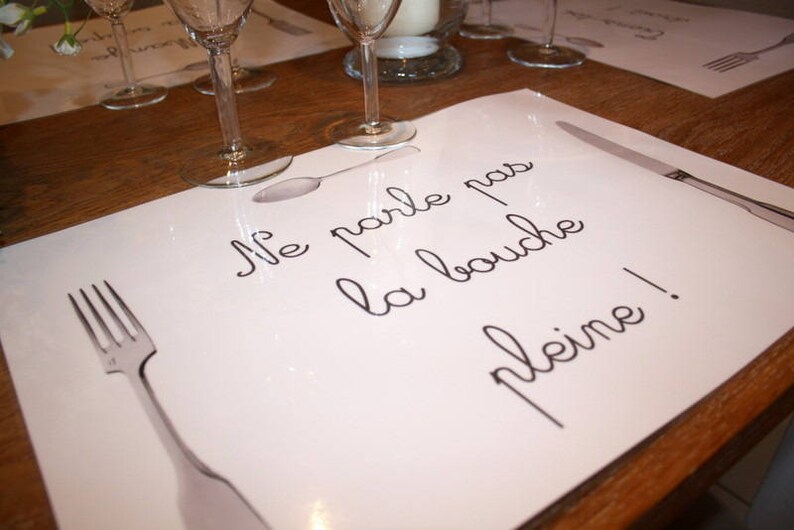 Ne parle pas
la bouche
pleine !